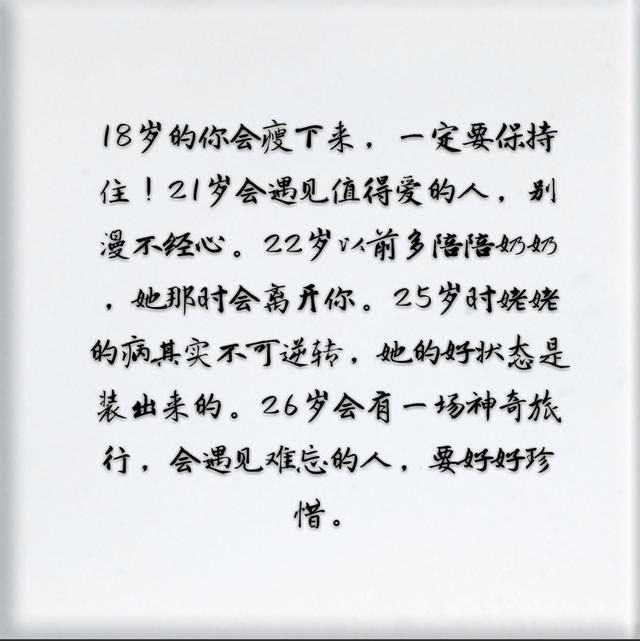 18岁的你会瘦下来，一定要保持
住！21岁会遇见值得爱的人，别
漫不经心。22岁以前多陪陪奶奶
，她那时会离开你。25岁时姥姥
的病其实不可逆转，她的好状态是
装出来的。26岁会有一场神奇旅
行，会遇见难忘的人，要好好珍
惜。